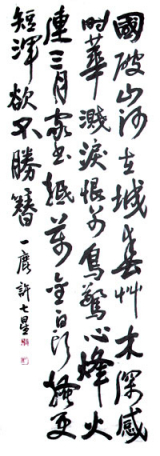 國破山河在城春艸木深感
時華濺淚恨別鳥驚心烽火
連三月家書抵萬金白頭搔更
短渾欲不勝簪
許七星